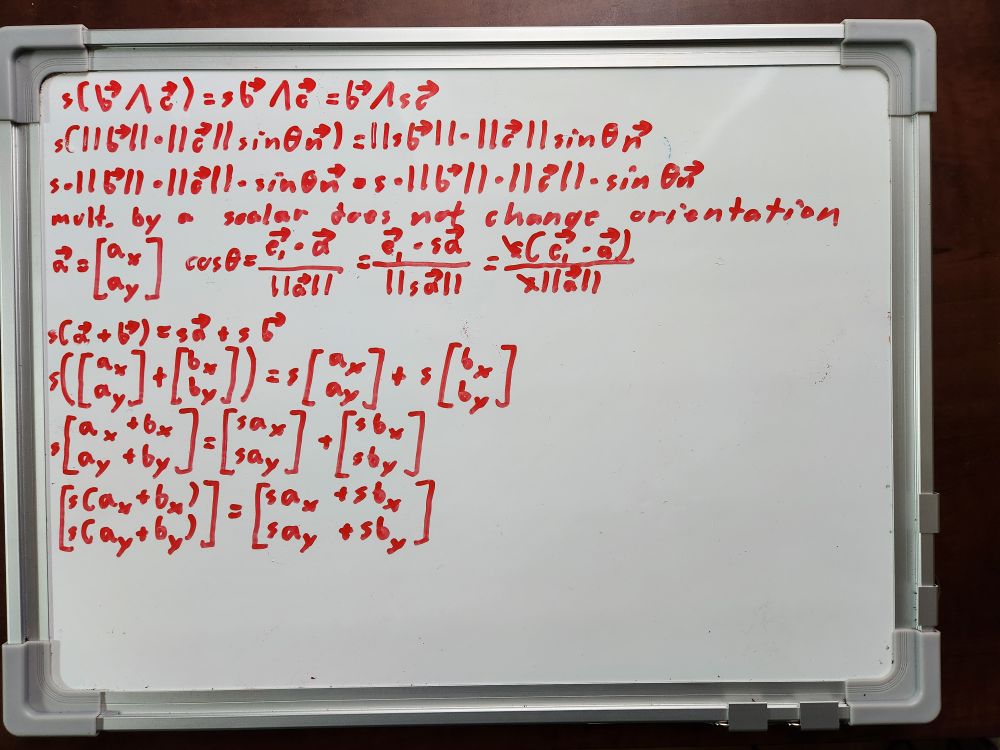 s(b⃗ ∧ c⃗) = s b⃗ ∧ c⃗ = b⃗ ∧ s c⃗
s(||b⃗|| · ||c⃗|| sin θ n⃗) = ||s b⃗|| · ||c⃗|| sin θ n⃗
s · ||b⃗|| · ||c⃗|| · sin θ n⃗ = s · ||b⃗|| · ||c⃗|| · sin θ n⃗
mult. by a scalar does not change orientation
a⃗ = [a_x; a_y] cos θ = (e⃗₁ · a⃗)/||a⃗|| = (e⃗₁ · s a⃗)/||s a⃗|| = s̸(e⃗₁ · a⃗)/s̸||a⃗||
s(a⃗ + b⃗) = s a⃗ + s b⃗
s([a_x; a_y] + [b_x; b_y]) = s[a_x; a_y] + s[b_x; b_y]
s[a_x + b_x; a_y + b_y] = [s a_x; s a_y] + [s b_x; s b_y]
[s(a_x + b_x); s(a_y + b_y)] = [s a_x + s b_x; s a_y + s b_y]